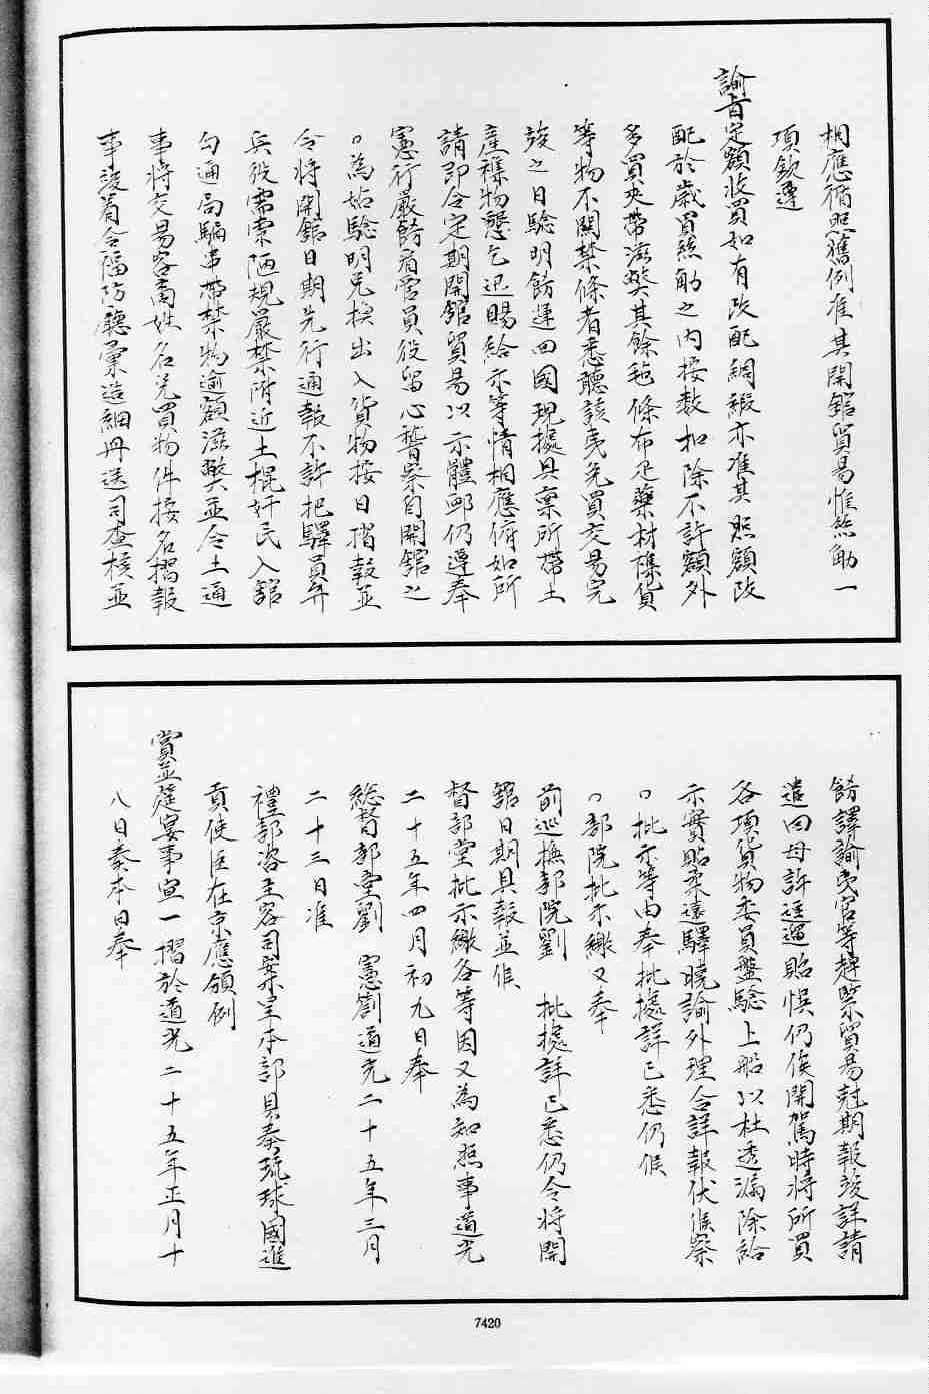 相應循照舊例准其開館貿易惟絲觔一
項欽遵
諭旨定額收買如有改配綢緞亦准其照額改
配於歲買絲觔之内按數扣除不許額外
多買夾帶滋弊其餘毡條布疋藥材襍貨
等物不關禁條者悉聽該夷免買交易完
竣之日驗明飭運回國現據具稟所帶土
産襍物懇乞迅賜給示等情相應俯如所
請即令定期開館貿易以示體邮仍遵奉
憲行嚴飭文官員役留心誓察自開館之
〃為始驗明兌換出入貨物按日摺報並
令將開館日期先行通報不許把驛員弁
兵役需索陋規嚴禁附近土棍奸民入舘
勾通局騙串帶禁物逾額滋弊並令土通
事將交易客商姓名兌買物件按名摺報
事竣着令福防廳彙造細冊送司查核並
飭譯諭夷官等趕緊貿易尅期報竣詳請
遣回毋許逗遛貽悞仍俟開駕時將所買
各項貨物委員盤驗上船以杜透漏除給
示實貼柔遠驛曉諭外理合詳報伏候察
〃批示等由奉批據詳已悉仍候
〃部院批示繳又奉
前巡撫部院劉　批據詳已悉仍令將開
舘日期具報並候
督部堂批示繳各等因又為知照事道光
二十五年四月初九日奉
總督部堂劉　憲劄道光二十五年三月
二十三日准
禮部咨主客司案呈本部具奏琉球國進
貢使臣在京應領例
賞並筵宴事宜一摺於道光二十五年正月十
八日奏本日奉
7420